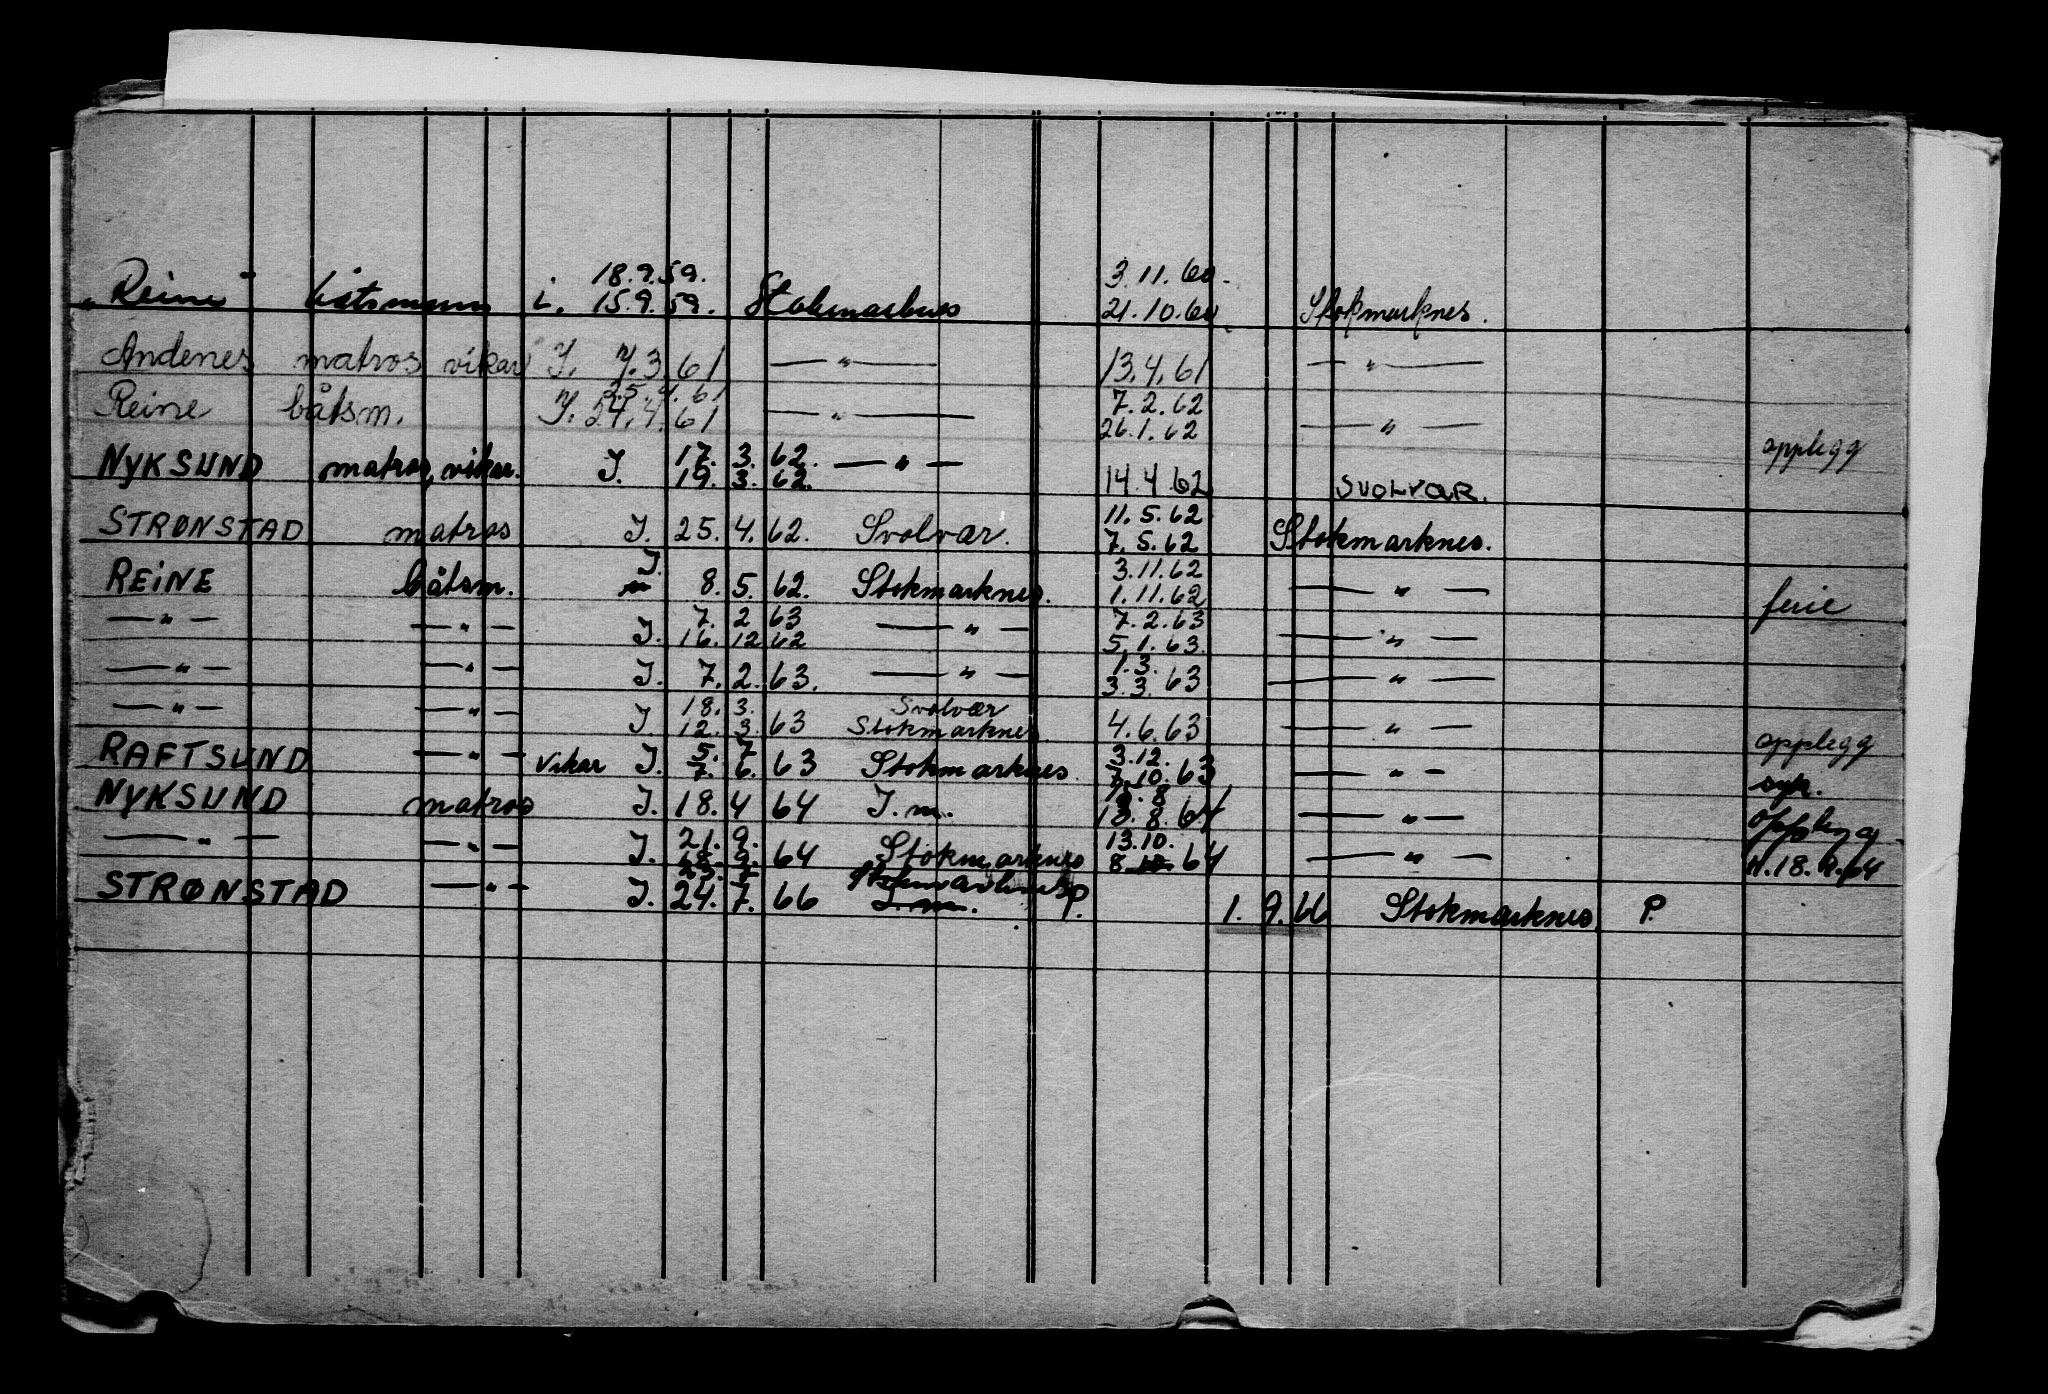 18.9.59. 3.11.60.
"Reine" båtsmann i. 15.9.59. Stokmarknes 21.10.60 Stokmarknes.
Andenes matros vikar J. 7.3.61 — " — 13.4.61 — " —
25.4.61 7.2.62
Reine båtsm. J. 24.4.61 — " — 26.1.62 — " — opplegg
17. 3. 62.
NYKSUND matros, vikar. J. 19. 3. 62. — " — 14.4.62 SVOLVÆR.
11.5.62
STRØNSTAD matros J. 25. 4. 62. Svolvær. 7.5.62 Stokmarknes.
J. 3.11.62
REINE båtsm. 8. 5. 62. Stokmarknes. 1.11.62 — " — ferie
7. 2 63 7.2.63
— " — — " — J. 16. 12 62 — " — 5.1.63. — " —
1.3.
— " — — " — J. 7. 2. 63. — " — 3.3.63 — " —
18. 3. Svolvær
— " — — " — J. 12. 3. 63 Stokmarknes. 4.6.63 — " — opplegg
5. 7 3.12.
RAFTSUND — " — vikar J. 7. 6. 63 Stokmarknes 7.10.63 — " — syk.
NYKSUND matros J. 18. 4 64 J.m. 13.8.64 — " — opplegg
21. 9. 13.10.
— " — — " — J. 18. 9. 64 Stokmarknes 8.10.64 — " — 18.4.64
Stokmarknes
STRØNSTAD — " — J. 24. 7. 66 J.m. P. 1. 9. 66 Stokmarknes P.